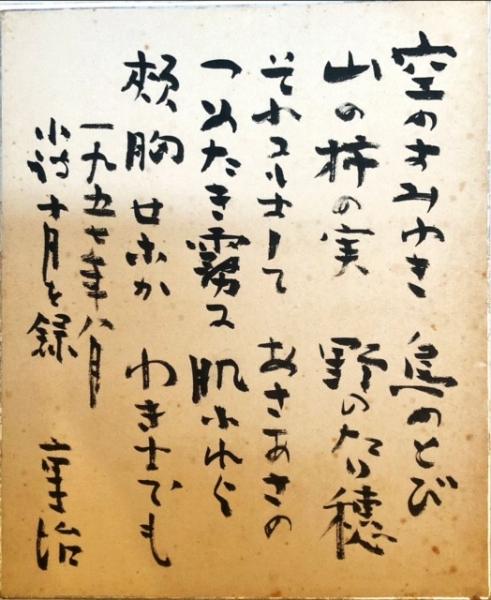 空のすみゆき 鳥のとび
山の柿の実 野のたり穂
それにもまして あさあさの
つめたき霧に 肌ふれよ
頬 胸 せなか わきまでも
一九五七年八月
小詩十月を録
重治